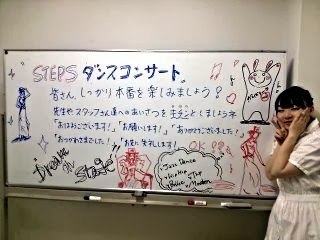 STEPS ダンスコンサート
皆さん、しっかり本番を楽しみましょう?
先生や、スタッフさん達へのあいさつをキチンとしましょうネ
「おはようございます!」「お願いします!」「ありがとうございました!」
「おつかれさまでした!」「お先に失礼します!」
OK??
"Dream on Stage"
・Jazz Dance
・Hip Hop
・Ballet
・Tap
・Modern